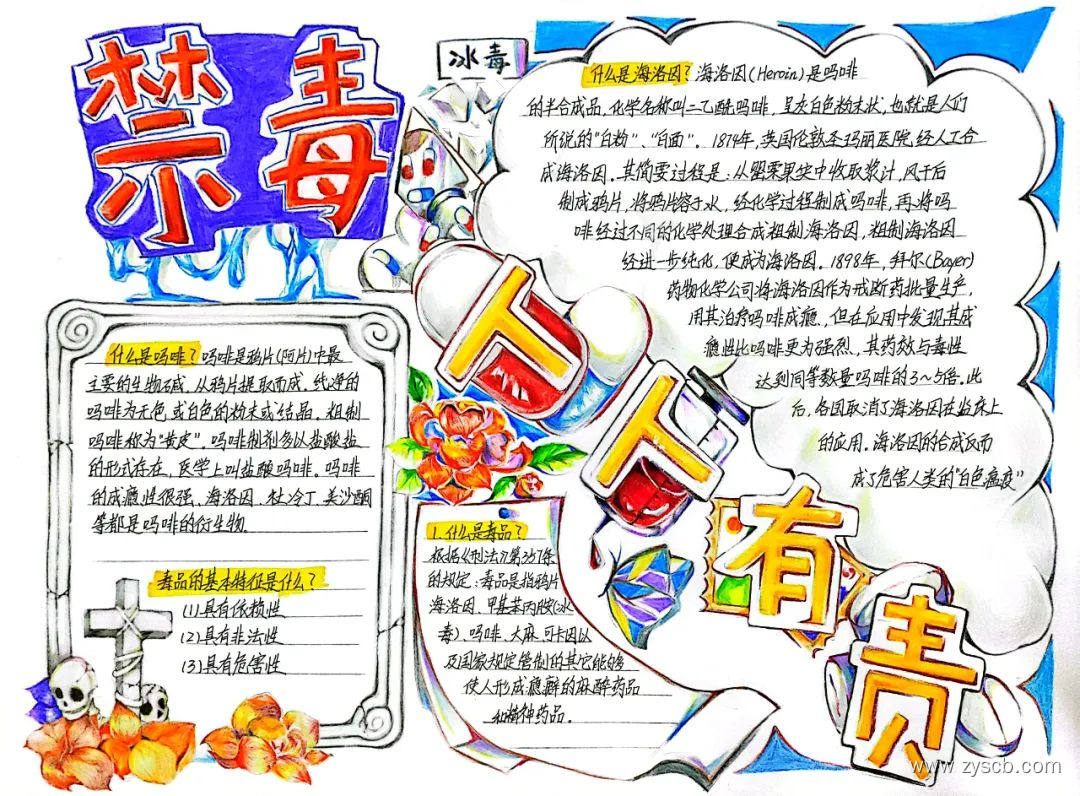 禁毒
人人有责
冰毒
什么是海洛因?海洛因(Heroin)是吗啡
的半合成品,化学名称叫二乙酰吗啡,呈灰白色粉末状,也就是人们
所说的"白粉"、"白面"。1874年,英国伦敦圣玛丽医院,经人工合
成海洛因。其简要过程是:从罂粟果实中收取浆汁,风干后
制成鸦片,将鸦片溶于水,经化学过程制成吗啡,再将吗
啡经过不同的化学处理合成粗制海洛因,粗制海洛因
经进一步纯化,便成为海洛因。1898年,拜尔(Bayer)
药物化学公司将海洛因作为戒断药批量生产,
用其治疗吗啡成瘾,但在应用中发现其成
瘾性比吗啡更为强烈,其药效与毒性
达到同等数量吗啡的3~5倍。此
后,各国取消了海洛因在临床上
的应用。海洛因的合成反而
成了危害人类的"白色瘟疫"
什么是吗啡?吗啡是鸦片(阿片)中最
主要的生物碱,从鸦片提取而成。纯净的
吗啡为无色或白色的粉末或结晶。粗制
吗啡称为"黄皮"。吗啡制剂多以盐酸盐
的形式存在,医学上叫盐酸吗啡。吗啡
的成瘾性很强、海洛因、杜冷丁、美沙酮
等都是吗啡的衍生物.
毒品的基本特征是什么?
(1)具有依赖性
(2)具有非法性
(3)具有危害性
1.什么是毒品?
根据《刑法》第357条
的规定:毒品是指鸦片
海洛因、甲基苯丙胺(冰
毒)、吗啡、大麻、可卡因以
及国家规定管制的其它能够
使人形成瘾癖的麻醉药品
和精神药品。
www.zyscb.com